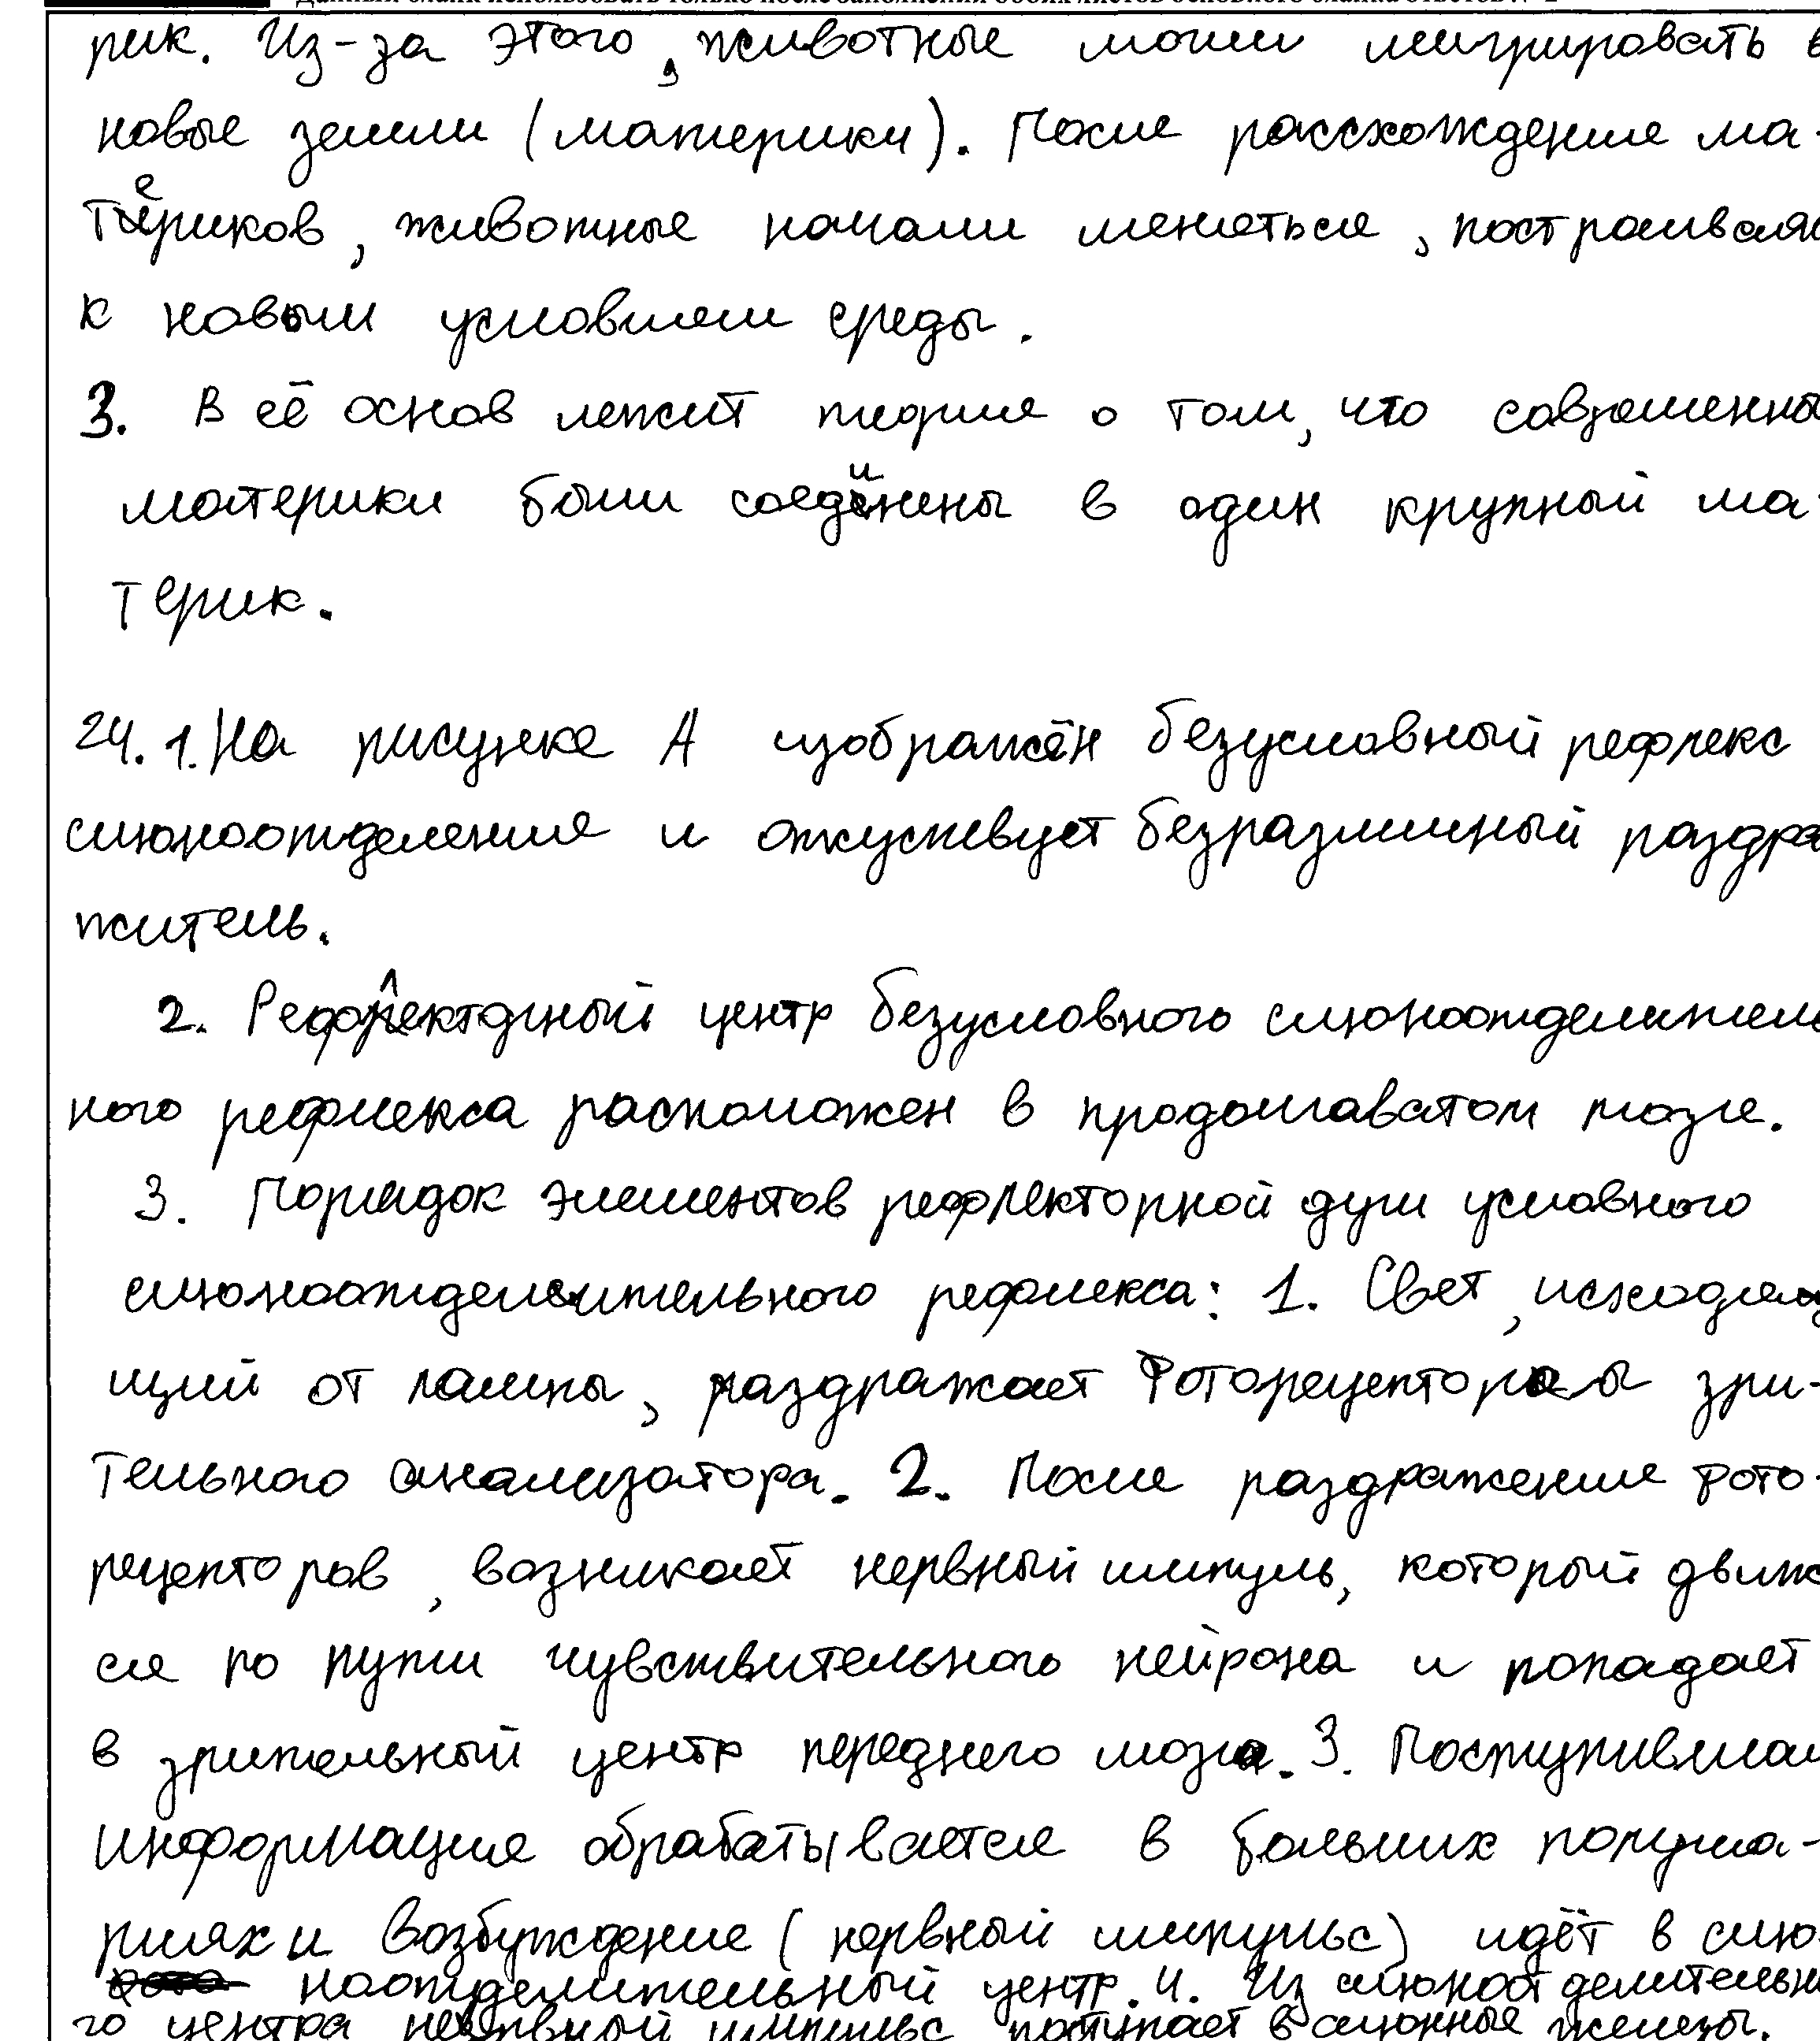 рик. Из-за этого, животные могли мигрировать в
новые земли (материки). После рассхождение ма-
териков, животные начали меняться, постраиваляс
к новым условиям среды.
3. В её основ лежит теория о том, что современны
материки были соединены в один крупный ма-
терик.
24. 1. На рисунке А изображён безусловный рефлекс
слюноотделения и отсуствует безразличный раздра
житель.
2. Рефлекторный центр безусловного слюноотделитель
ного рефлекса расположен в продолговатом мозге.
3. Порядок элементов рефлекторной дуги условного
слюноотделительного рефлекса: 1. Свет, исходящ
щий от лампы, раздражает фоторецепторы зри-
тельного анализатора. 2. После раздражение фото-
рецепторов, возникает нервный импуль, который движе
ся по пути чувствительного нейрона и попадает
в зрительный центр переднего мозга. 3. Поступившая
информация обрабатывается в больших полуша-
риях и возбуждение (нервный импульс) идёт в слю-
ноотделительный центр. 4. Из слюноотделительн
го центра нервный импульс поступает в слюнные железы.